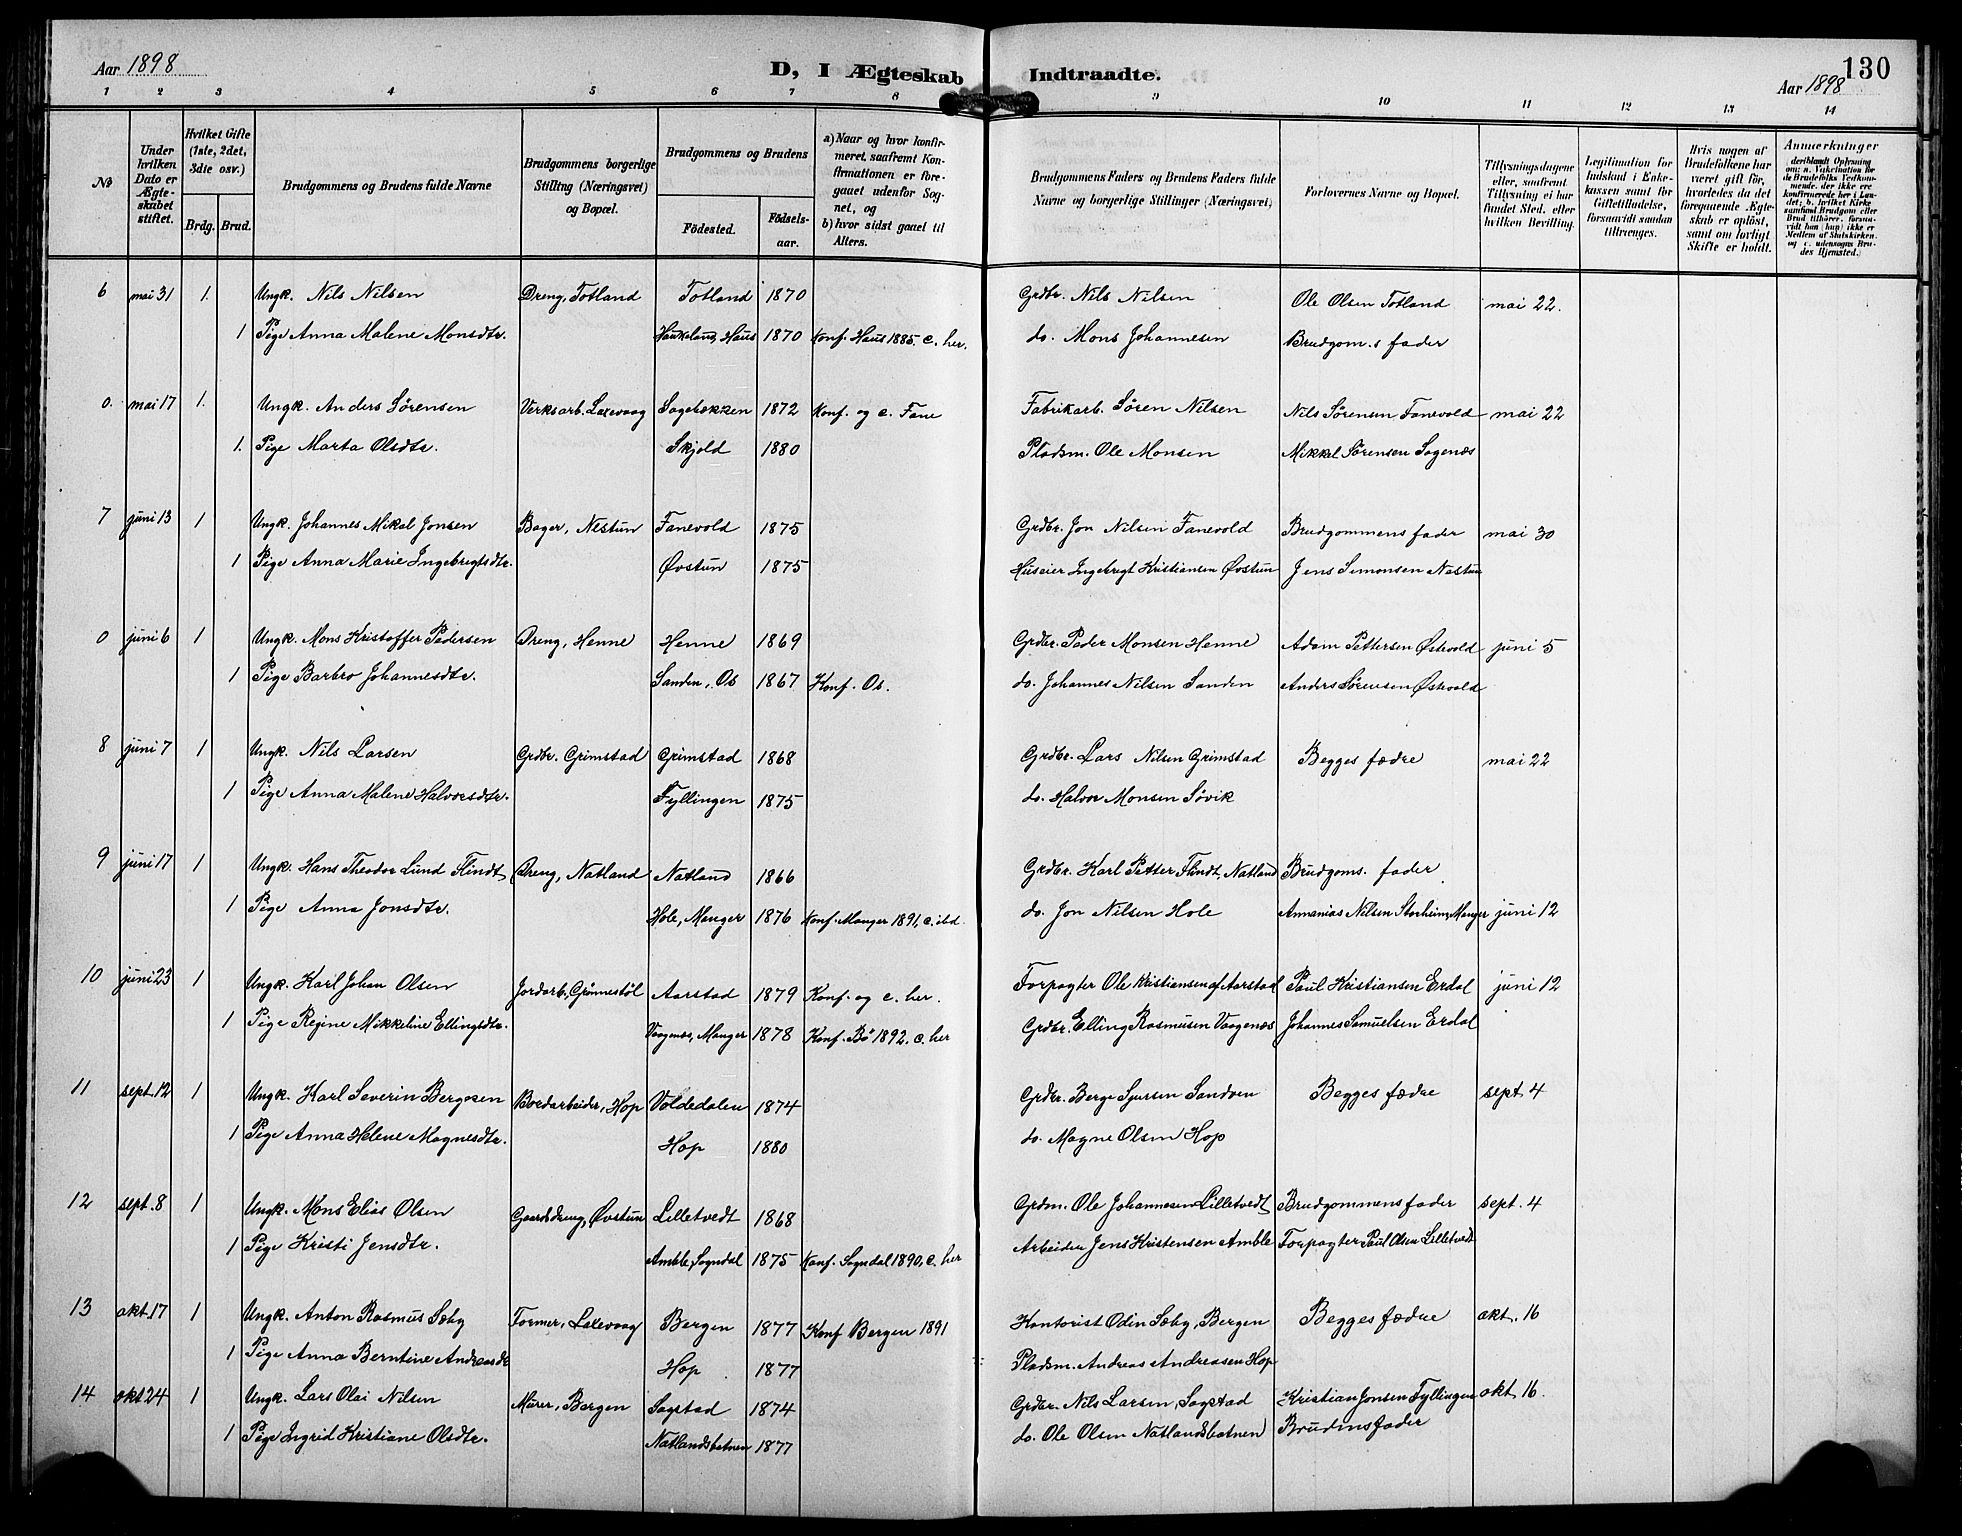 Aar 1898
D, I Ægteskab Indtraadte.
130
Aar 1898
1 2 3 4 5 6 7 8 9 10 11 12 13 14
No
Under hvilken Dato er Ægteskabet stiftet.
Hvilket Gifte (1ste, 2det, 3die osv.)
Brdg. Brud.
Brudgommens og Brudens fulde Navne
Brudgommens borgerlige Stilling (Næringsvei) og Bopæl.
Brudgommens og Brudens
Fødested.
Fødselsaar.
a) Naar og hvor konfirmeret, saafremt Konfirmationen er foregaaet udenfor Sognet, og
b) hvor sidst gaaet til Alters.
Brudgommens Faders og Brudens Faders fulde Navne og borgerlige Stillinger (Næringsvei)
Forlovernes Navne og Bopæl.
Tillysningsdagene eller, saafremt Tillysning ei har fundet Sted, efter hvilken Bevilling.
Legitimation for Indskud i Enkekassen samt for Giftetilladelse, forsaavidt saadan tiltrænges.
Hvis nogen af Brudefolkene har været gift før, hvorledes da det foregaaende Ægteskab er opløst, samt om lovligt Skifte er holdt.
Anmærkninger (deriblandt Oplysning om: a. Vakcination for de Brudefolks Vedkommende, der ikke ere konfirmerede her i Landet; b. hvilket Kirkesamfund Brudgom eller Brud tilhører, forsaavidt han (hun) ikke er Medlem af Statskirken, og c. udensogns Brudes Hjemsted.)
6 mai 31 1. Ungk. Nils Nilsen Dreng, Totland Totland 1870 Grdbr. Nils Nilsen Ole Olsen Totland mai 22.
1 Pige Anna Malene Monsdtr. Haukeland, Haus 1870 Konf. Haus 1885. c. her. do. Mons Johannesen Brudgom.s fader
0. mai 17 1. Ungk. Anders Sørensen Verksarb. Laxevaag Sagebækken 1872 Konf. og c. Fane Fabrikarb. Søren Nilsen Nils Sørensen Fanevold mai 22
1. Pige Marta Olsdtr. Skjold 1880 Pladsm. Ole Monsen Mikkel Sørensen Sagenæs
7 juni 13 1 Ungk. Johannes Mikal Jonsen Bager, Nestun Fanevold 1875 Grdbr. Jon Nilsen Fanevold Brudgommens fader mai 30
1 Pige Anna Marie Ingebrigtsdtr. Øvstun 1875 Huseier Ingebrigt Kristiansen Øvstun Jens Simonsen Nestun
0 juni 6 1 Ungk. Mons Kristoffer Pedersen Dreng, Henne Henne 1869 Grdbr. Peder Monsen Henne Adam Pettersen Østvold juni 5
1 Pige Barbro Johannesdtr. Sanden, Os 1867 Konf. Os. do. Johannes Nilsen Sanden Anders Sørensen Østvold
8 juni 7 1 Ungk. Nils Larsen Grdbr. Grimstad Grimstad 1868 Grdbr. Lars Nilsen Grimstad Begges fædre mai 22
1 Pige Anna Malene Halvorsdtr. Fyllingen 1875 do. Halvor Monsen Søvik
9 juni 17 1 Ungk. Hans Theodor Lund Flindt Dreng, Natland Natland 1866 Grdbr. Karl Petter Flindt, Natland Brudgoms. fader
1 Pige Anna Jonsdtr. Hole, Manger 1876 Konf. Manger 1891, c. ibd. do. Jon Nilsen Hole Annanias Nilsen Storheim, Manger juni 12
10 juni 23 1 Ungk. Karl Johan Olsen Jordarb, Grønnestøl Aarstad 1879 Konf. og c. her. Forpagter Ole Kristiansen af Aarstad Paul Kristiansen Erdal juni 12
1 Pige Regine Mikkeline Ellingsdtr. Vaagenes, Manger 1878 Konf. Bö 1892. c. her Grdbr. Elling Rasmusen Vaagenæs Johannes Samuelsen Erdal
11 sept. 12 1 Ungk. Karl Severin Bergesen Bordarbeider, Hop Voldedalen 1874 Grdbr. Berge Sjursen Sandven Begges fædre sept 4
1 Pige Anna Helene Magnesdtr. Hop 1880 do. Magne Olsen Hop
12 sept. 8 1 Ungk. Mons Elias Olsen Gaardsdreng, Øvstun Lilletvedt 1868 Grdm. Ole Johannesen Lilletvedt Brudgommens fader sept. 4
1 Pige Kristi Jensdtr. Amble, Sogndal 1875 Konf. Sogndal 1890, c. her Arbeider Jens Kristensen Amble Forpagter Paul Olsen Lilletvedt
13 okt. 17 1 Ungk. Anton Rasmus Sæby Former, Laxevaag Bergen 1877 Konf Bergen 1891 Kontorist Odin Sæby, Bergen Begges fædre okt. 16
1 Pige Anna Berntine Andreasdtr Hop 1877 Pladsm. Andreas Andreasen Hop
14 okt 24 1 Ungk. Lars Olai Nilsen Murer, Bergen Sagstad 1874 Grdbr. Nils Larsen, Sagstad Kristian Jonsen Fyllingen okt 16.
1 Pige Ingrid Kristiane Olsdtr. Natlandsbotnen 1877 do. Ole Olsen Natlandsbotnen Brudens fader